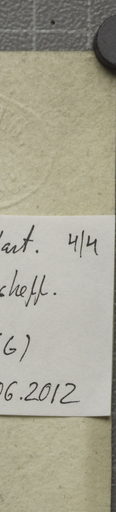 art. 4/4
sheff.
(G)
06.2012